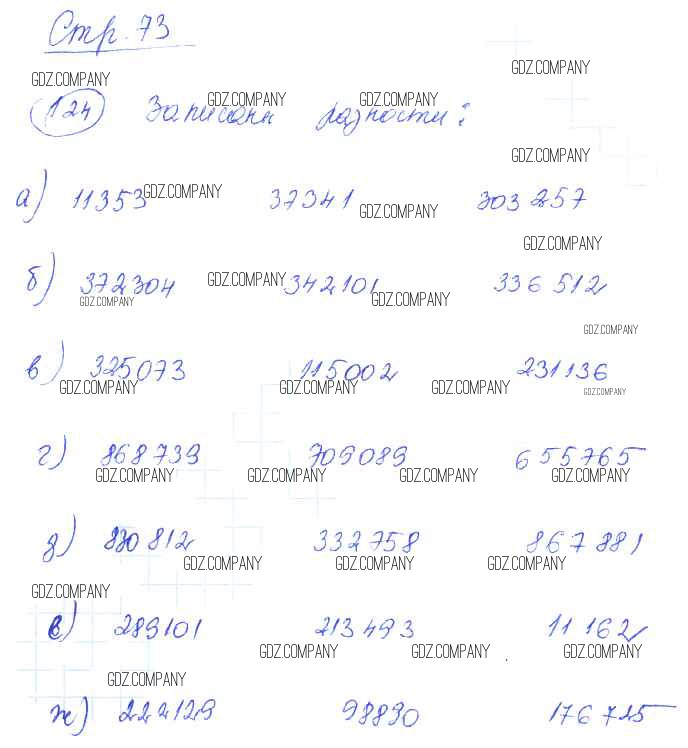 Стр. 73
GDZ.COMPANY
GDZ.COMPANY
124 Записаны разности:
GDZ.COMPANY GDZ.COMPANY
GDZ.COMPANY
а) 11353 37341 303 257
GDZ.COMPANY GDZ.COMPANY
GDZ.COMPANY
б) 372304 342101 336 512
GDZ.COMPANY GDZ.COMPANY GDZ.COMPANY
GDZ.COMPANY
в) 325073 115002 231136
GDZ.COMPANY GDZ.COMPANY GDZ.COMPANY GDZ.COMPANY
г) 868739 709089 655765
GDZ.COMPANY GDZ.COMPANY GDZ.COMPANY GDZ.COMPANY
д) 830 812 332758 867881
GDZ.COMPANY GDZ.COMPANY GDZ.COMPANY
GDZ.COMPANY
е) 289101 213493 11 162
GDZ.COMPANY GDZ.COMPANY GDZ.COMPANY
GDZ.COMPANY
ж) 222129 98890 176725